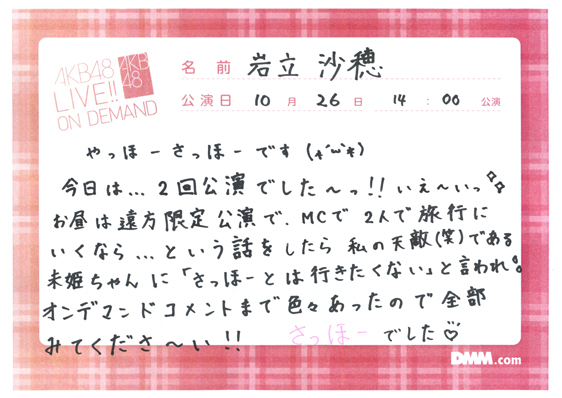 AKB48
LIVE!!
ON DEMAND
AKB
48
名前 岩立 沙穂
公演日 10月 26日 14:00 公演
やっほーさっほーです(*´ω`*)
今日は...2回公演でした〜っ!!いえ〜いっ
お昼は遠方限定公演で、MCで 2人で旅行に
いくなら...という話をしたら 私の天敵(笑)である
未姫ちゃんに「さっほーとは行きたくない」と言われ。
オンデマンドコメントまで色々あったので全部
みてくださ〜い!! さっほー でした♡
DMM.com